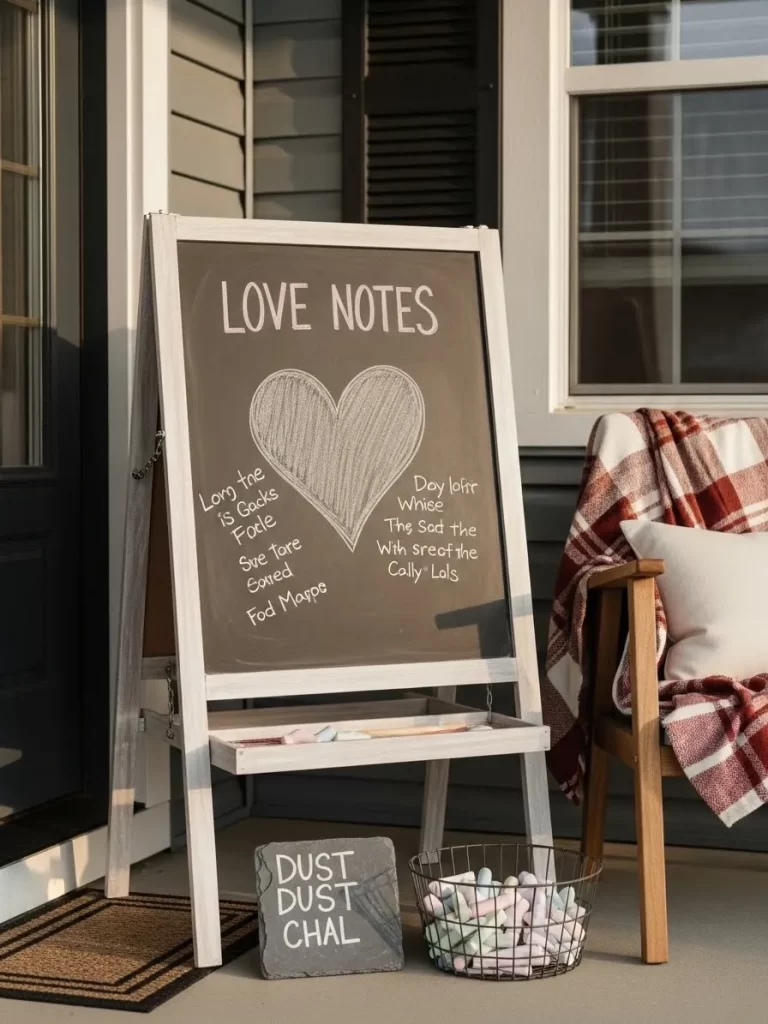 LOVE NOTES
Long the
is Gacks
Facle
Sve tare
Soved
Fod Mapps
Day lofir
Whise
The Sod the
With sreof the
Cally Lols
DUST
DUST
CHAL